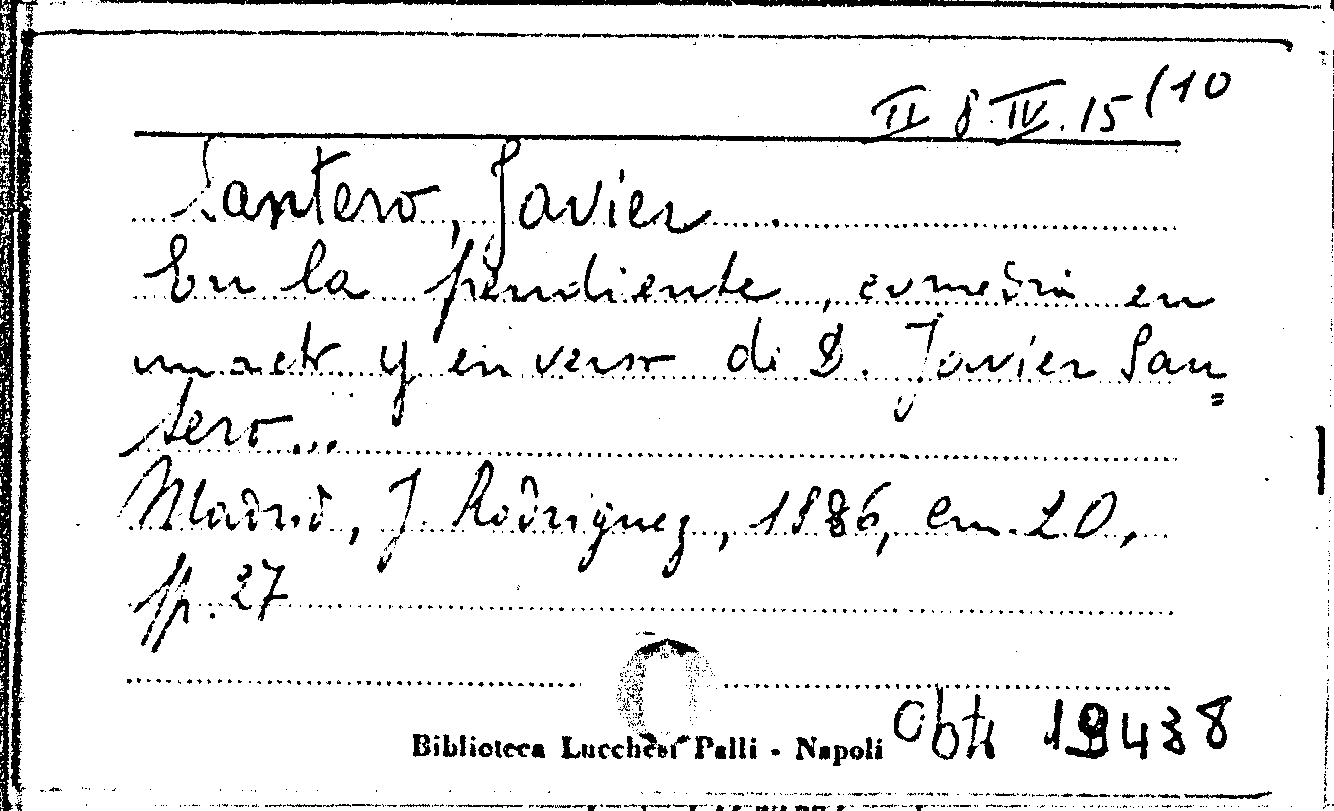 II 8. IV. 15 (10
Santero, Javier
En la pendiente, comedia en
un acto y en verso di D. Javier San=
tero...
Madrid, J. Rodriguez, 1886, cm. 20,
pp. 27
Biblioteca Lucchesi Palli - Napoli
19438